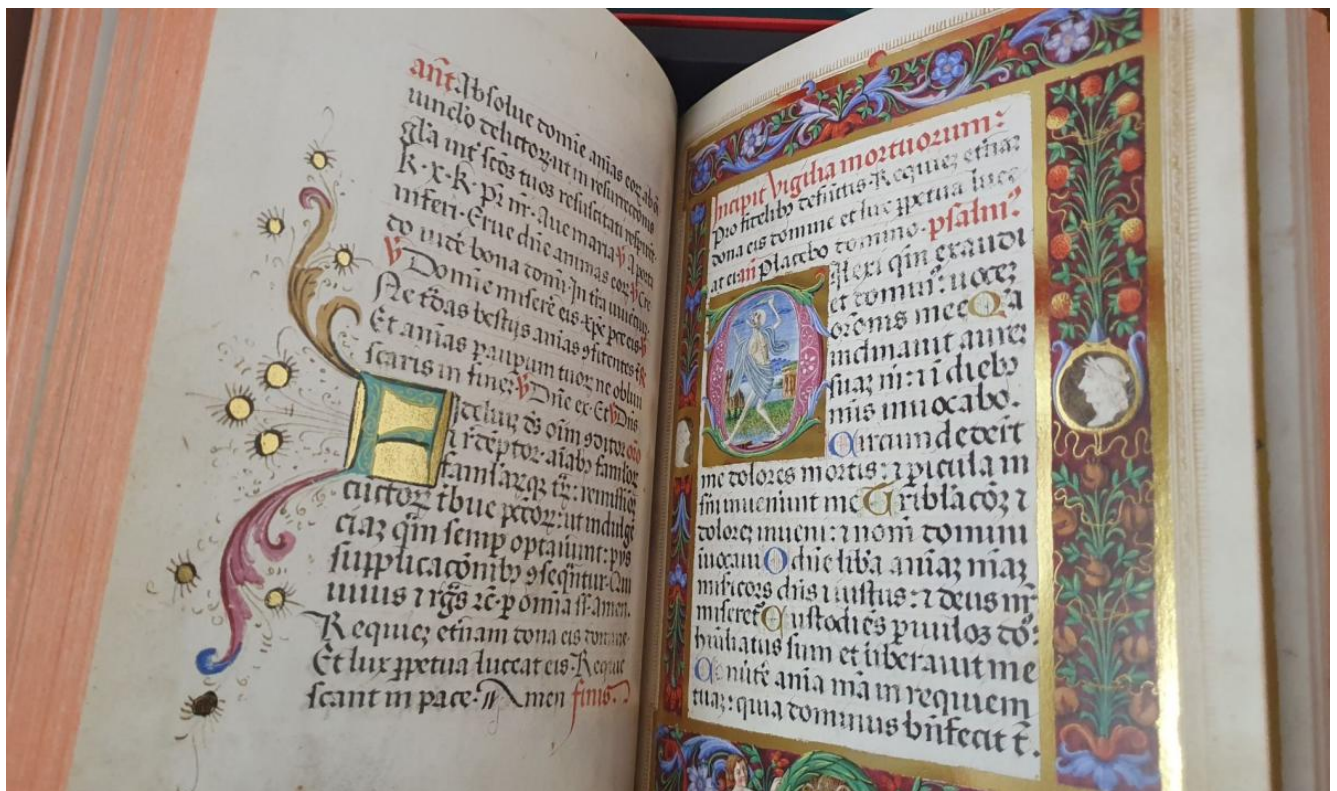 añt Absolue domíe anías eor ab oí
uinclo delictor ut in resurrectiõis
gl'a int' scõs tuos resuscitati respirẽt
k·x·k· pr̃ nr̃· Aue maria ỽ A porta
inferi· Erue dñe animas eor ỽ Cre
do uidẽ bona domi· In tra uiuẽtiuz
ỽ Domíe miserẽ eis· xp̃e pce eis ỽ
Ne t͂das bestijs anías ꝯfitentes t̃ R
Et anías paupum tuor ne obliui
scaris in finez ỽ Dñe ex· Et ỽ Dñs
Fidelium ds oĩm ꝯditor orõ
⁊ rẽdeptor· aiabꝫ famulor
famlarqꝫ tuar: remissioez
cũctor tbue pctor: ut indulgẽ
ciaz qm̃ semp optauiunt: pys
supplicacõnibꝫ ꝯseqñtur· Qui
uiuis ⁊ rgs̃ ⁊c̃· p omia ss· amen·
Requiez etñam dona eis domine·
Et lux ppetua luceat eis· Requie
scant in pace· Amen finis·
Incipit vigilia mortuorum:
Pro fidelibꝫ defũctis· Requiez etñaz
dona eis domine et lux ppetua luce
at eis añ Placebo domino· psalm'
Dilexi qm̃ exaudi
et domin': uocez
orõnis mee Qa
inclinauit aurez
suaz m̃: ⁊ i diebꝫ
mis inuocabo·
Circumdedert
me dolores mortis: ⁊ picula in
fm̃ inuenirunt me Triblacõz ⁊
dolorez inueni: ⁊ nom̃ domini
inuocaui O dñe liba aniaz miaz
misericors dñs ⁊ iustus: ⁊ deus nr̃
miseret̃ Custodiẽs puulos dõ:
huiliatus sum et liberauit me
Cõuertẽ anía mã in requiem
tuaz: quia dominus bñfecit t̃·